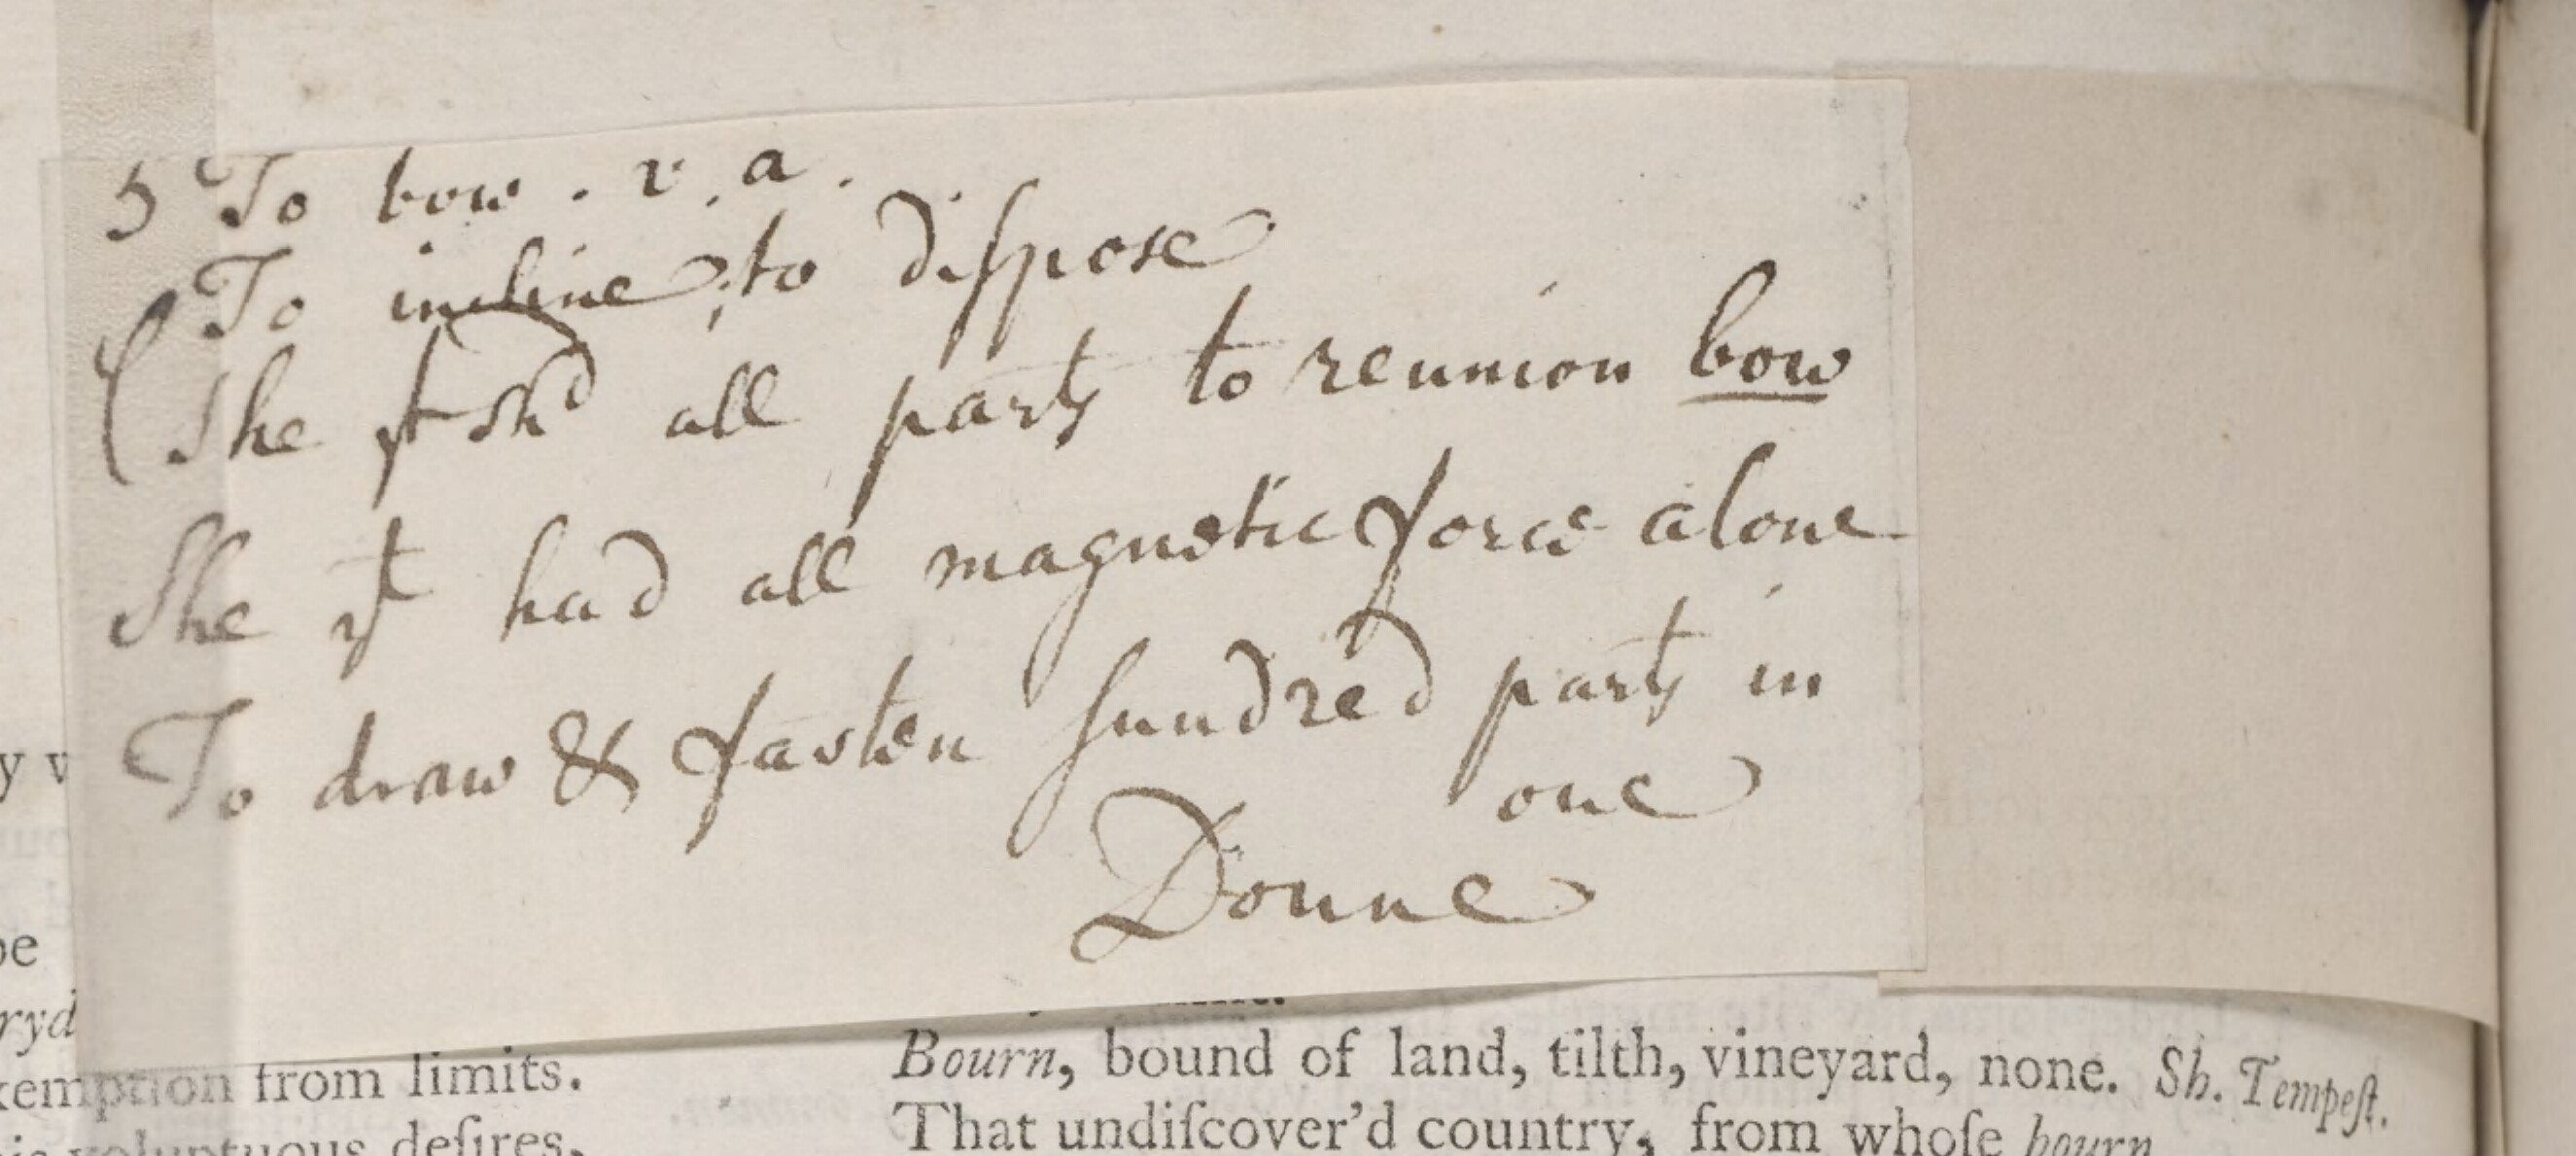 5 To bow . v. a.
To incline; to diſpose
(She yt shd all parts to reunion bow
She yt had all magnetic force alone
To draw & fasten sundred parts in
one
Donne
y v
be
ryd
exemption from limits.
voluptuous deſires,
Bourn, bound of land, tilth, vineyard, none. Sh. Tempeſt.
That undiſcover'd country, from whoſe bourn